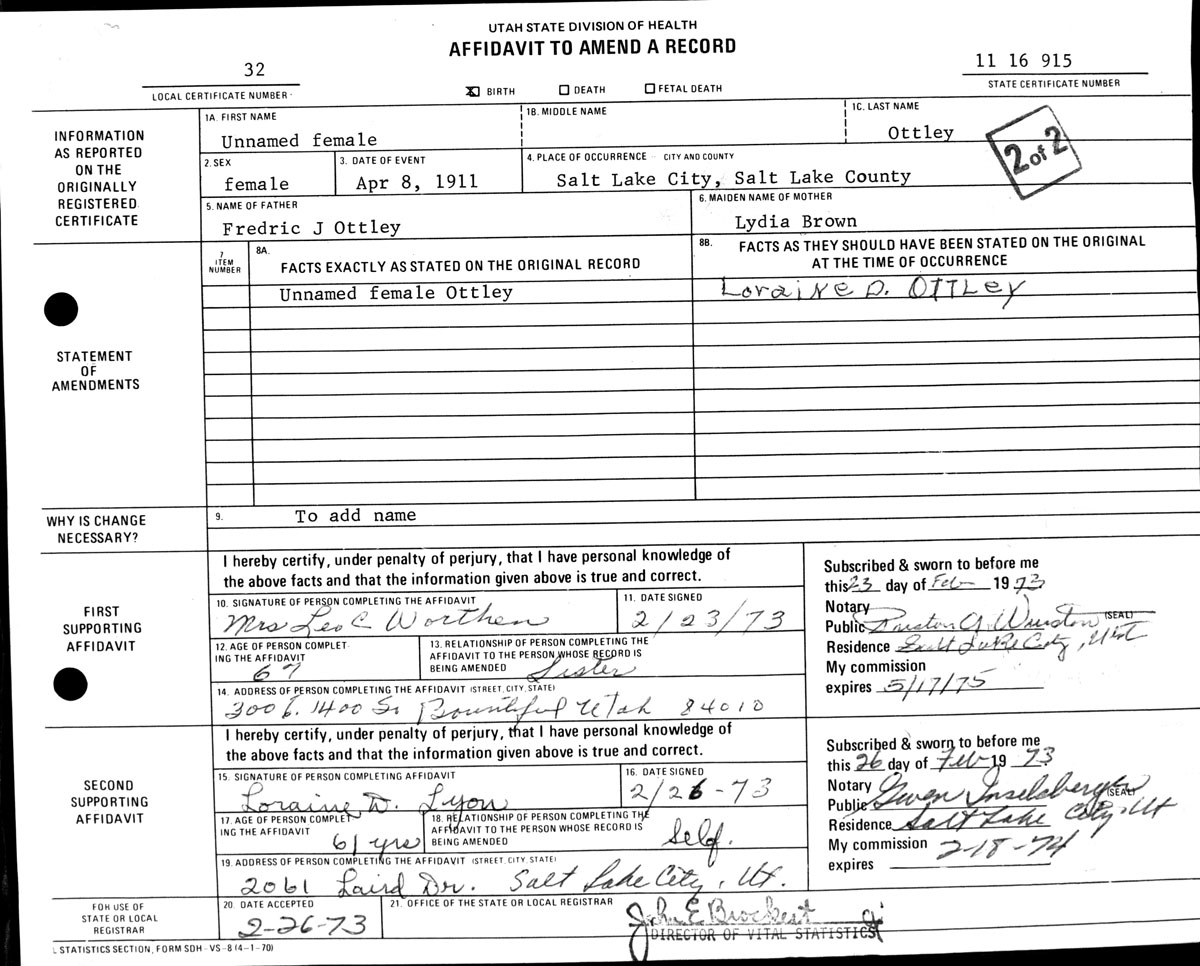 UTAH STATE DIVISION OF HEALTH
AFFIDAVIT TO AMEND A RECORD
32
LOCAL CERTIFICATE NUMBER
BIRTH DEATH FETAL DEATH
11 16 915
STATE CERTIFICATE NUMBER
INFORMATION AS REPORTED ON THE ORIGINALLY REGISTERED CERTIFICATE
1A. FIRST NAME
Unnamed female
1B. MIDDLE NAME
1C. LAST NAME
Ottley
2 of 2
2. SEX
female
3. DATE OF EVENT
Apr 8, 1911
4. PLACE OF OCCURRENCE - CITY AND COUNTY
Salt Lake City, Salt Lake County
5. NAME OF FATHER
Fredric J Ottley
6. MAIDEN NAME OF MOTHER
Lydia Brown
STATEMENT OF AMENDMENTS
7 ITEM NUMBER
8A. FACTS EXACTLY AS STATED ON THE ORIGINAL RECORD
8B. FACTS AS THEY SHOULD HAVE BEEN STATED ON THE ORIGINAL AT THE TIME OF OCCURRENCE
Unnamed female Ottley
Loraine D. Ottley
WHY IS CHANGE NECESSARY?
9. To add name
FIRST SUPPORTING AFFIDAVIT
I hereby certify, under penalty of perjury, that I have personal knowledge of
the above facts and that the information given above is true and correct.
10. SIGNATURE OF PERSON COMPLETING THE AFFIDAVIT
Mrs Leo C Worthen
11. DATE SIGNED
2/23/73
12. AGE OF PERSON COMPLETING THE AFFIDAVIT
67
13. RELATIONSHIP OF PERSON COMPLETING THE AFFIDAVIT TO THE PERSON WHOSE RECORD IS BEING AMENDED
Sister
14. ADDRESS OF PERSON COMPLETING THE AFFIDAVIT (STREET, CITY, STATE)
300 E. 1400 So Bountiful Utah 84010
Subscribed & sworn to before me
this 23 day of Feb 1973
Notary
Public Winston (SEAL)
Residence Salt Lake City, Ut
My commission
expires 5/17/75
SECOND SUPPORTING AFFIDAVIT
I hereby certify, under penalty of perjury, that I have personal knowledge of
the above facts and that the information given above is true and correct.
15. SIGNATURE OF PERSON COMPLETING AFFIDAVIT
Loraine D. Lyon
16. DATE SIGNED
2/26-73
17. AGE OF PERSON COMPLETING THE AFFIDAVIT
61 yrs
18. RELATIONSHIP OF PERSON COMPLETING THE AFFIDAVIT TO THE PERSON WHOSE RECORD IS BEING AMENDED
Self.
19. ADDRESS OF PERSON COMPLETING THE AFFIDAVIT (STREET, CITY, STATE)
2061 Laird Dr. Salt Lake City, Ut.
Subscribed & sworn to before me
this 26 day of Feb 1973
Notary
Public Gwen Inselsberger (SEAL)
Residence Salt Lake City Ut
My commission
expires 2-18-74
FOR USE OF STATE OR LOCAL REGISTRAR
20. DATE ACCEPTED
2-26-73
21. OFFICE OF THE STATE OR LOCAL REGISTRAR
John E Brockert
DIRECTOR OF VITAL STATISTICS
STATISTICS SECTION, FORM SDH-VS-8 (4-1-70)